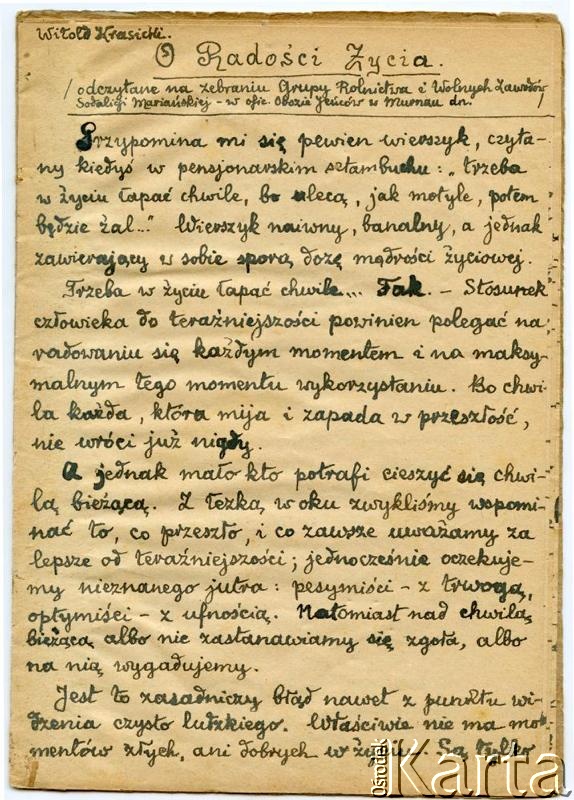 Witold Krasicki.
O Radości Życia.
/odczytane na zebraniu Grupy Rolnictwa i Wolnych Zawodów
Sodalicji Mariańskiej - w ofic. Obozie Jeńców w Murnau dn. /
Przypomina mi się pewien wierszyk, czyta-
ny kiedyś w pensjonarskim sztambuchu: "trzeba
w życiu łapać chwile, bo ulecą, jak motyle, potem
będzie żal..." Wierszyk naiwny, banalny, a jednak
zawierający w sobie sporą dozę mądrości życiowej.
Trzeba w życiu łapać chwile... Tak. - Stosunek
człowieka do teraźniejszości powinien polegać na
radowaniu się każdym momentem i na maksy-
malnym tego momentu wykorzystaniu. Bo chwi-
la każda, która mija i zapada w przeszłość,
nie wróci już nigdy.
A jednak mało kto potrafi cieszyć się chwi-
lą bieżącą. Z łezką w oku zwykliśmy wspomi-
nać to, co przeszło, i co zawsze uważamy za
lepsze od teraźniejszości; jednocześnie oczekuje-
my nieznanego jutra: pesymiści - z trwogą,
optymiści - z ufnością. Natomiast nad chwilą
bieżącą albo nie zastanawiamy się zgoła, albo
na nią wygadujemy.
Jest to zasadniczy błąd nawet z punktu wi-
dzenia czysto ludzkiego. Właściwie nie ma mo-
mentów złych, ani dobrych w życiu. Są tylko
Ośrodek Karta